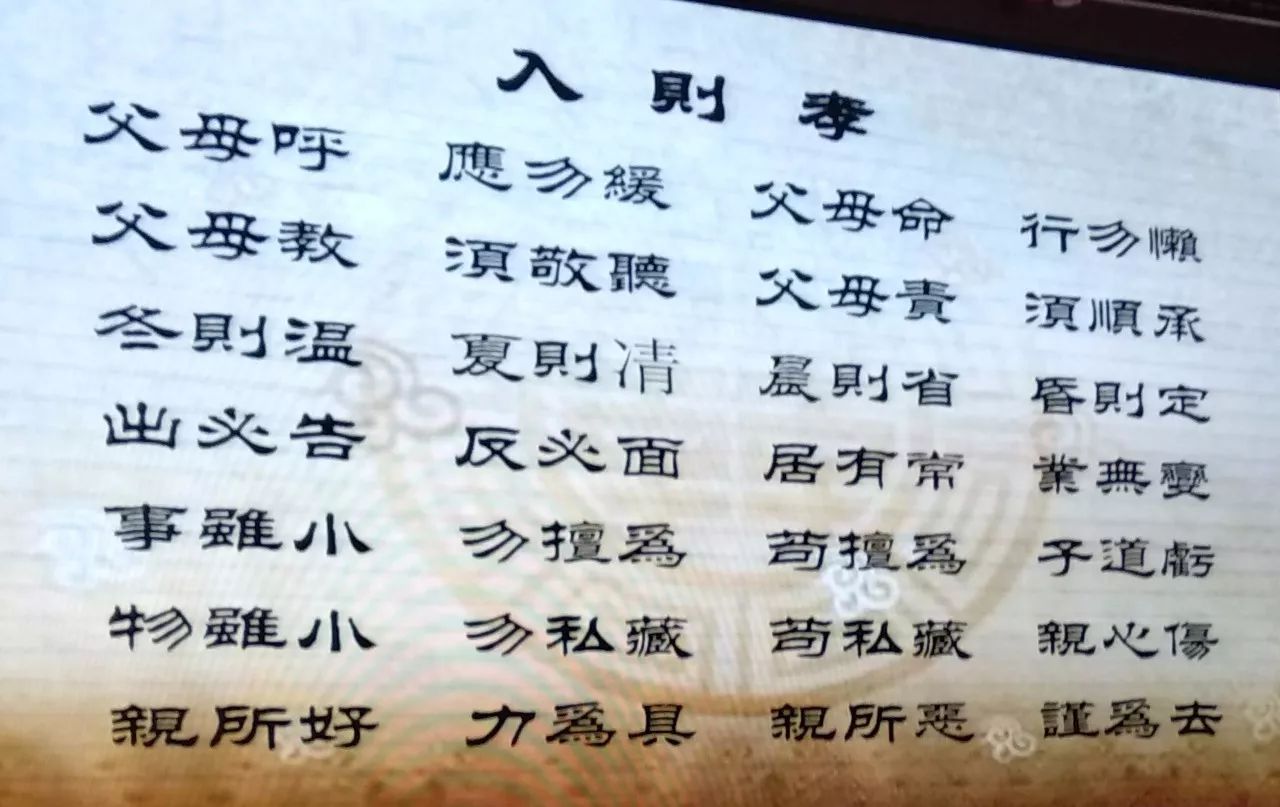 入則孝
父母呼 應勿緩 父母命 行勿懶
父母教 須敬聽 父母責 須順承
冬則温 夏則凊 晨則省 昏則定
出必告 反必面 居有常 業無變
事雖小 勿擅爲 苟擅爲 子道虧
物雖小 勿私藏 苟私藏 親心傷
親所好 力爲具 親所惡 謹爲去